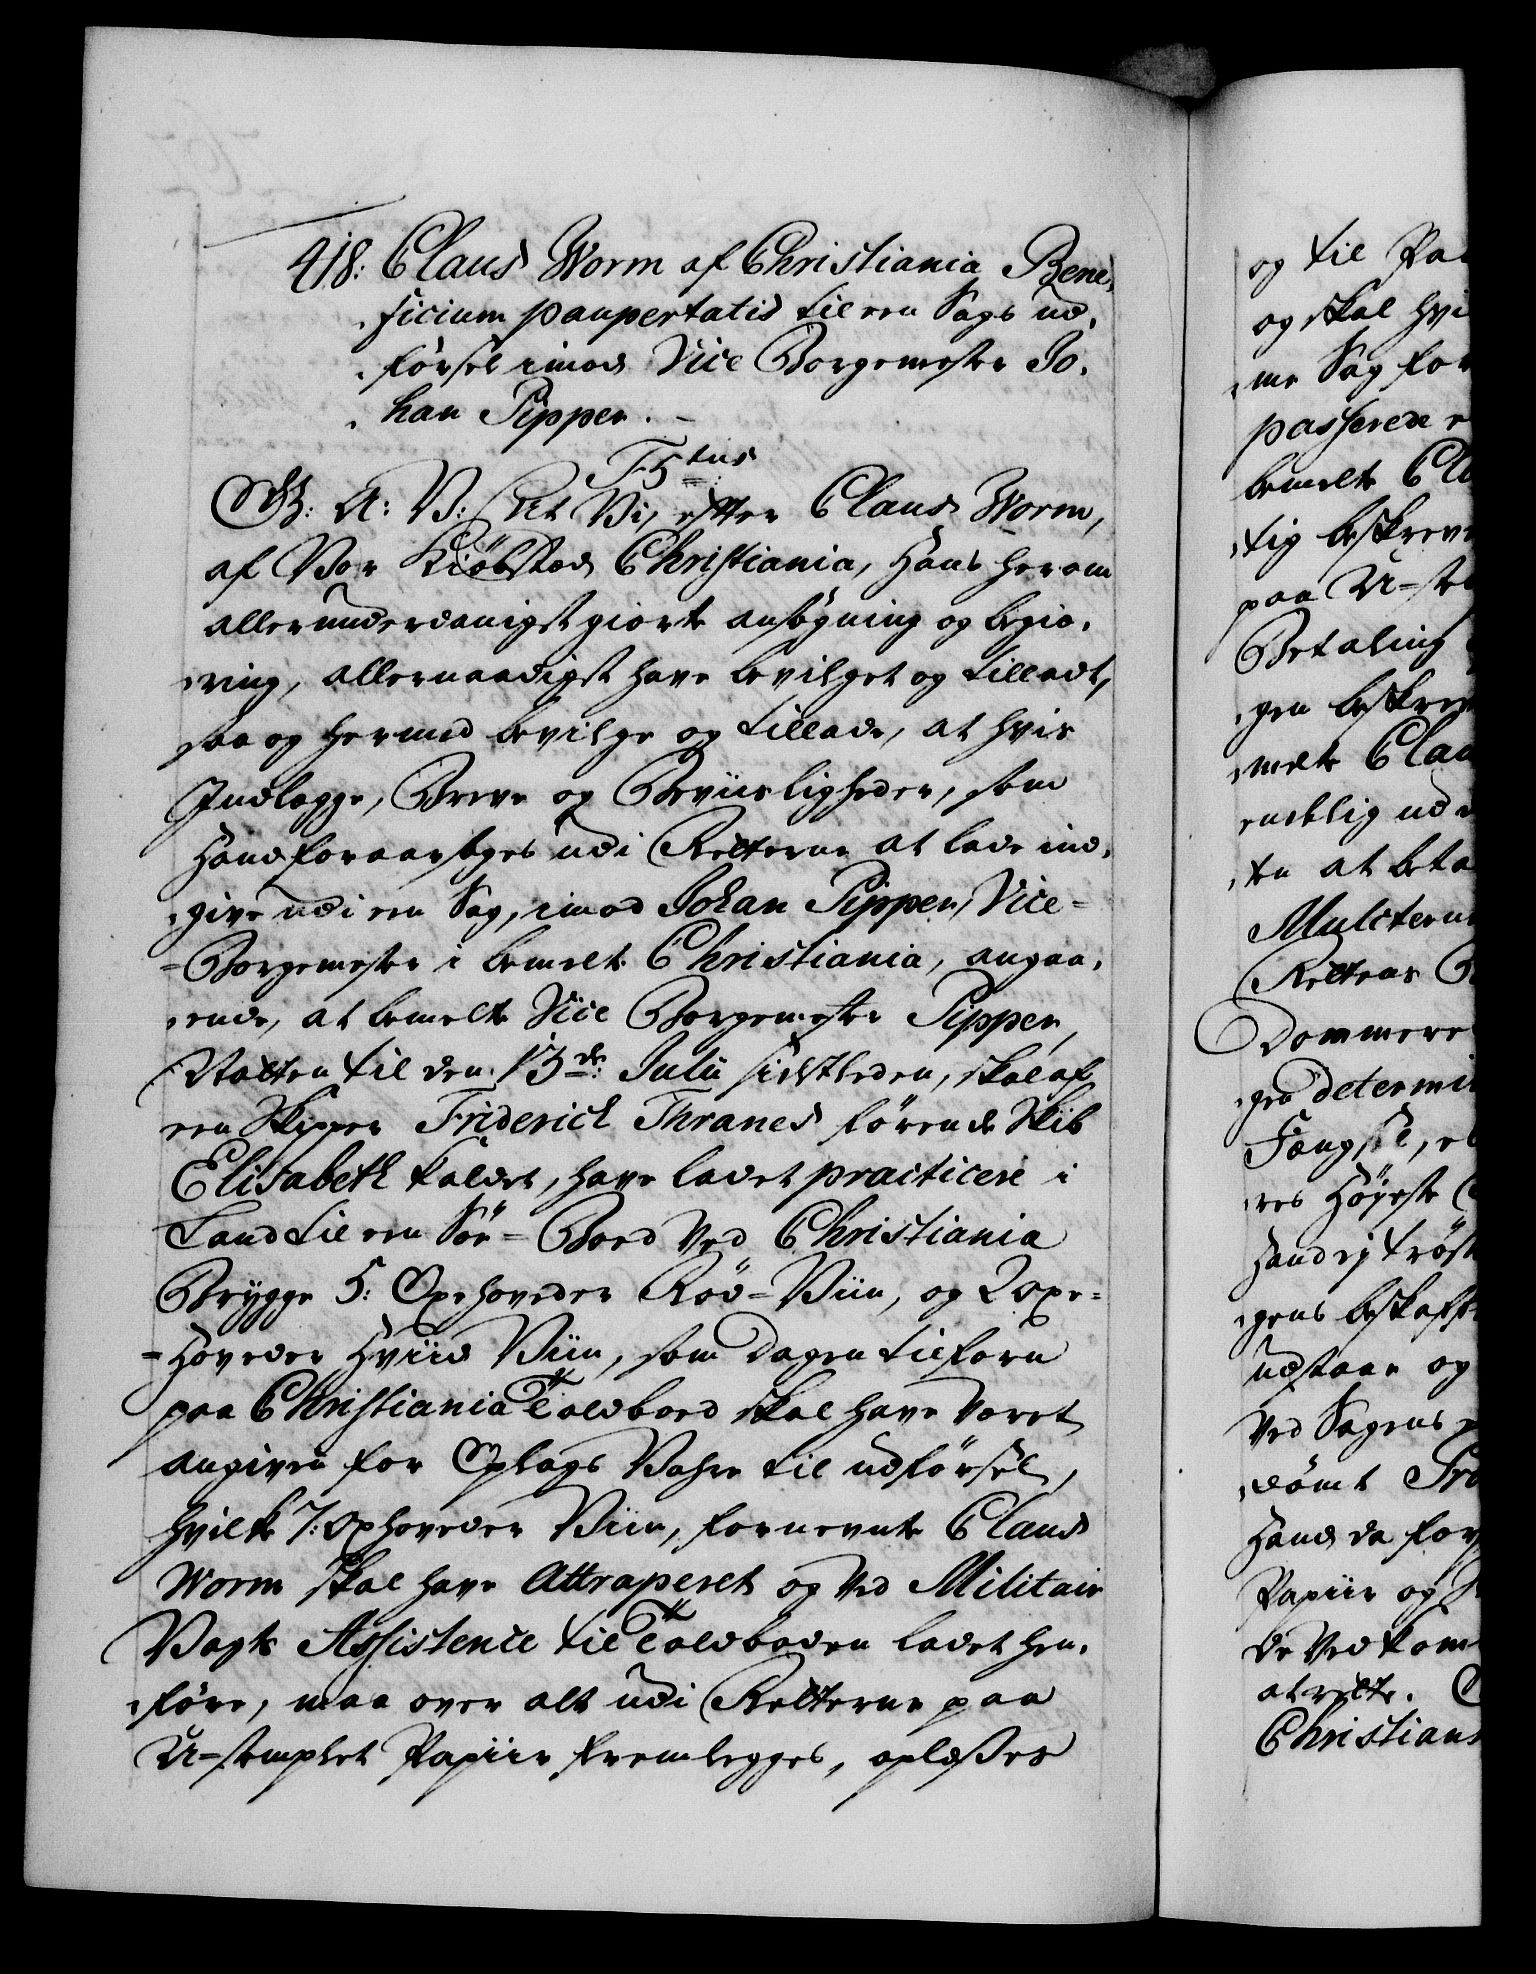 418: Claus Worm af Christiania Bene,
,ficium paupertatis til een Sags ud,
,førsel imod Vice Borgemester Jo,
,han Pipper.
F5tus
G: A: V: At Vi, efter Claus Worm,
af Vor Kiöbsted Christiania, Hans herom
allerunderdanigst giorte ansögning og begie,
,ring, allernaadigst have bevilget og tilladt,
saa og hermed bevilge og tillade, at hvis
Indlægge, Breve og Beviisligheder, som
Hand foraarsages udi Retterne at lade ind,
,give udi een Sag, imod Johan Pipper, Vice=
=Borgemester i bemelte Christiania, angaa,
,ende, at bemelte Vice Borgemester Pipper,
Natten til den 13de Julii sidstleden, skal af
een Skipper Friderich Thranes førende Skib
Elisabeth kaldet, have ladet practicere i
Land til een Söe=Boed ved Christiania
Brygge 5: Oxehoveder Röd=Viin, og 2 oxe=
=Hoveder Hviid Viin, som Dagen tilforn
paa Christiania Toldboed skal have været
angiven for Oplags Vahre til udförsel,
hvilke 7: Oxhoveder Viin, fornevnte Claus
Worm skal have Attraperet og ved Militair
Vagts Assistence til Toldboden ladet hen,
,före, maa over alt udi Retterne paa
U=stemplet Papiir fremlegges, oplæses

og til
og skal
,me Sag for
passerede
bemelte
,tig beskrev
paa U=ste
Betaling
,gen beskrev
,melte Clau
endelig ud
,te at beta
Mulcterne
Rettens
Dommere
,ges determi
Fængsel,
,res Høyeste
Hand ej tröst
,gens beskaff
udstaae og
Ved Sagens
,dömt
Hand da for
Papiir og
de Vedkom
at rette.
Christians